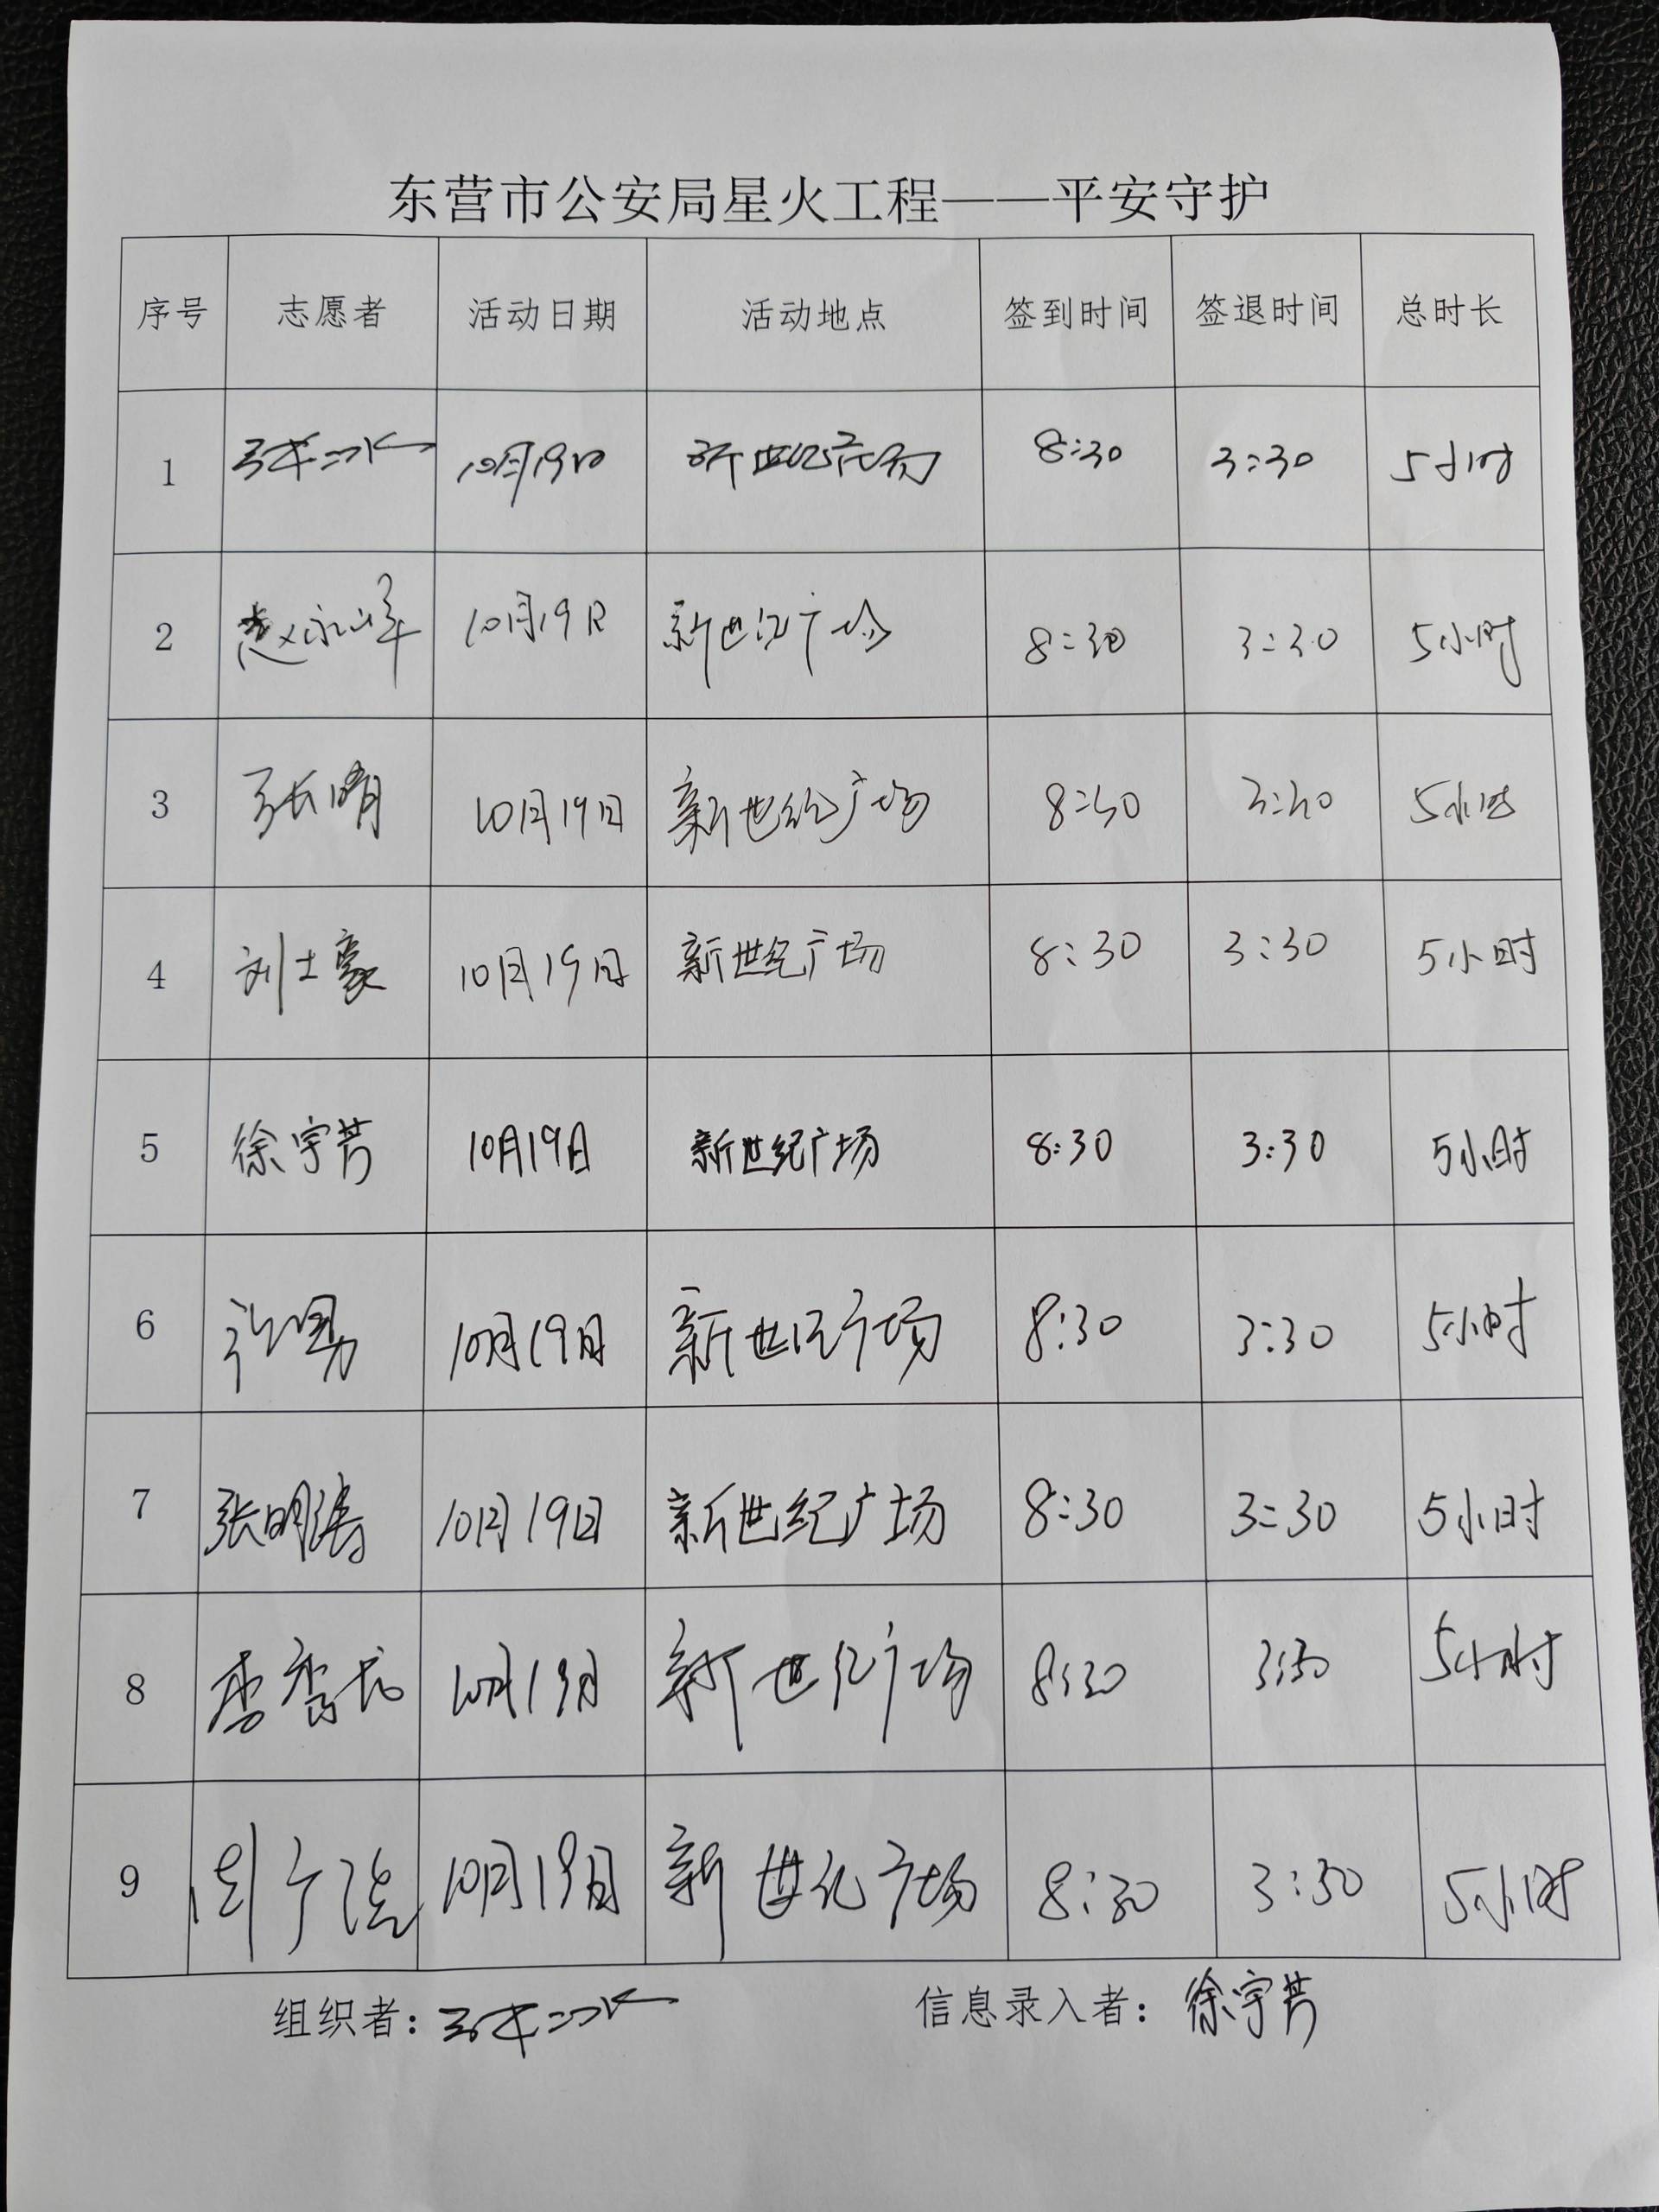 东营市公安局星火工程——平安守护
序号 志愿者 活动日期 活动地点 签到时间 签退时间 总时长
1 10月19日 新世纪广场 8:30 3:30 5小时
2 赵永峰 10月19日 新世纪广场 8:30 3:30 5小时
3 张晴 10月19日 新世纪广场 8:30 3:30 5小时
4 刘士豪 10月19日 新世纪广场 8:30 3:30 5小时
5 徐宇芳 10月19日 新世纪广场 8:30 3:30 5小时
6 许勇 10月19日 新世纪广场 8:30 3:30 5小时
7 张明涛 10月19日 新世纪广场 8:30 3:30 5小时
8 10月19日 新世纪广场 8:30 3:30 5小时
9 10月19日 新世纪广场 8:30 3:30 5小时
组织者: 信息录入者: 徐宇芳